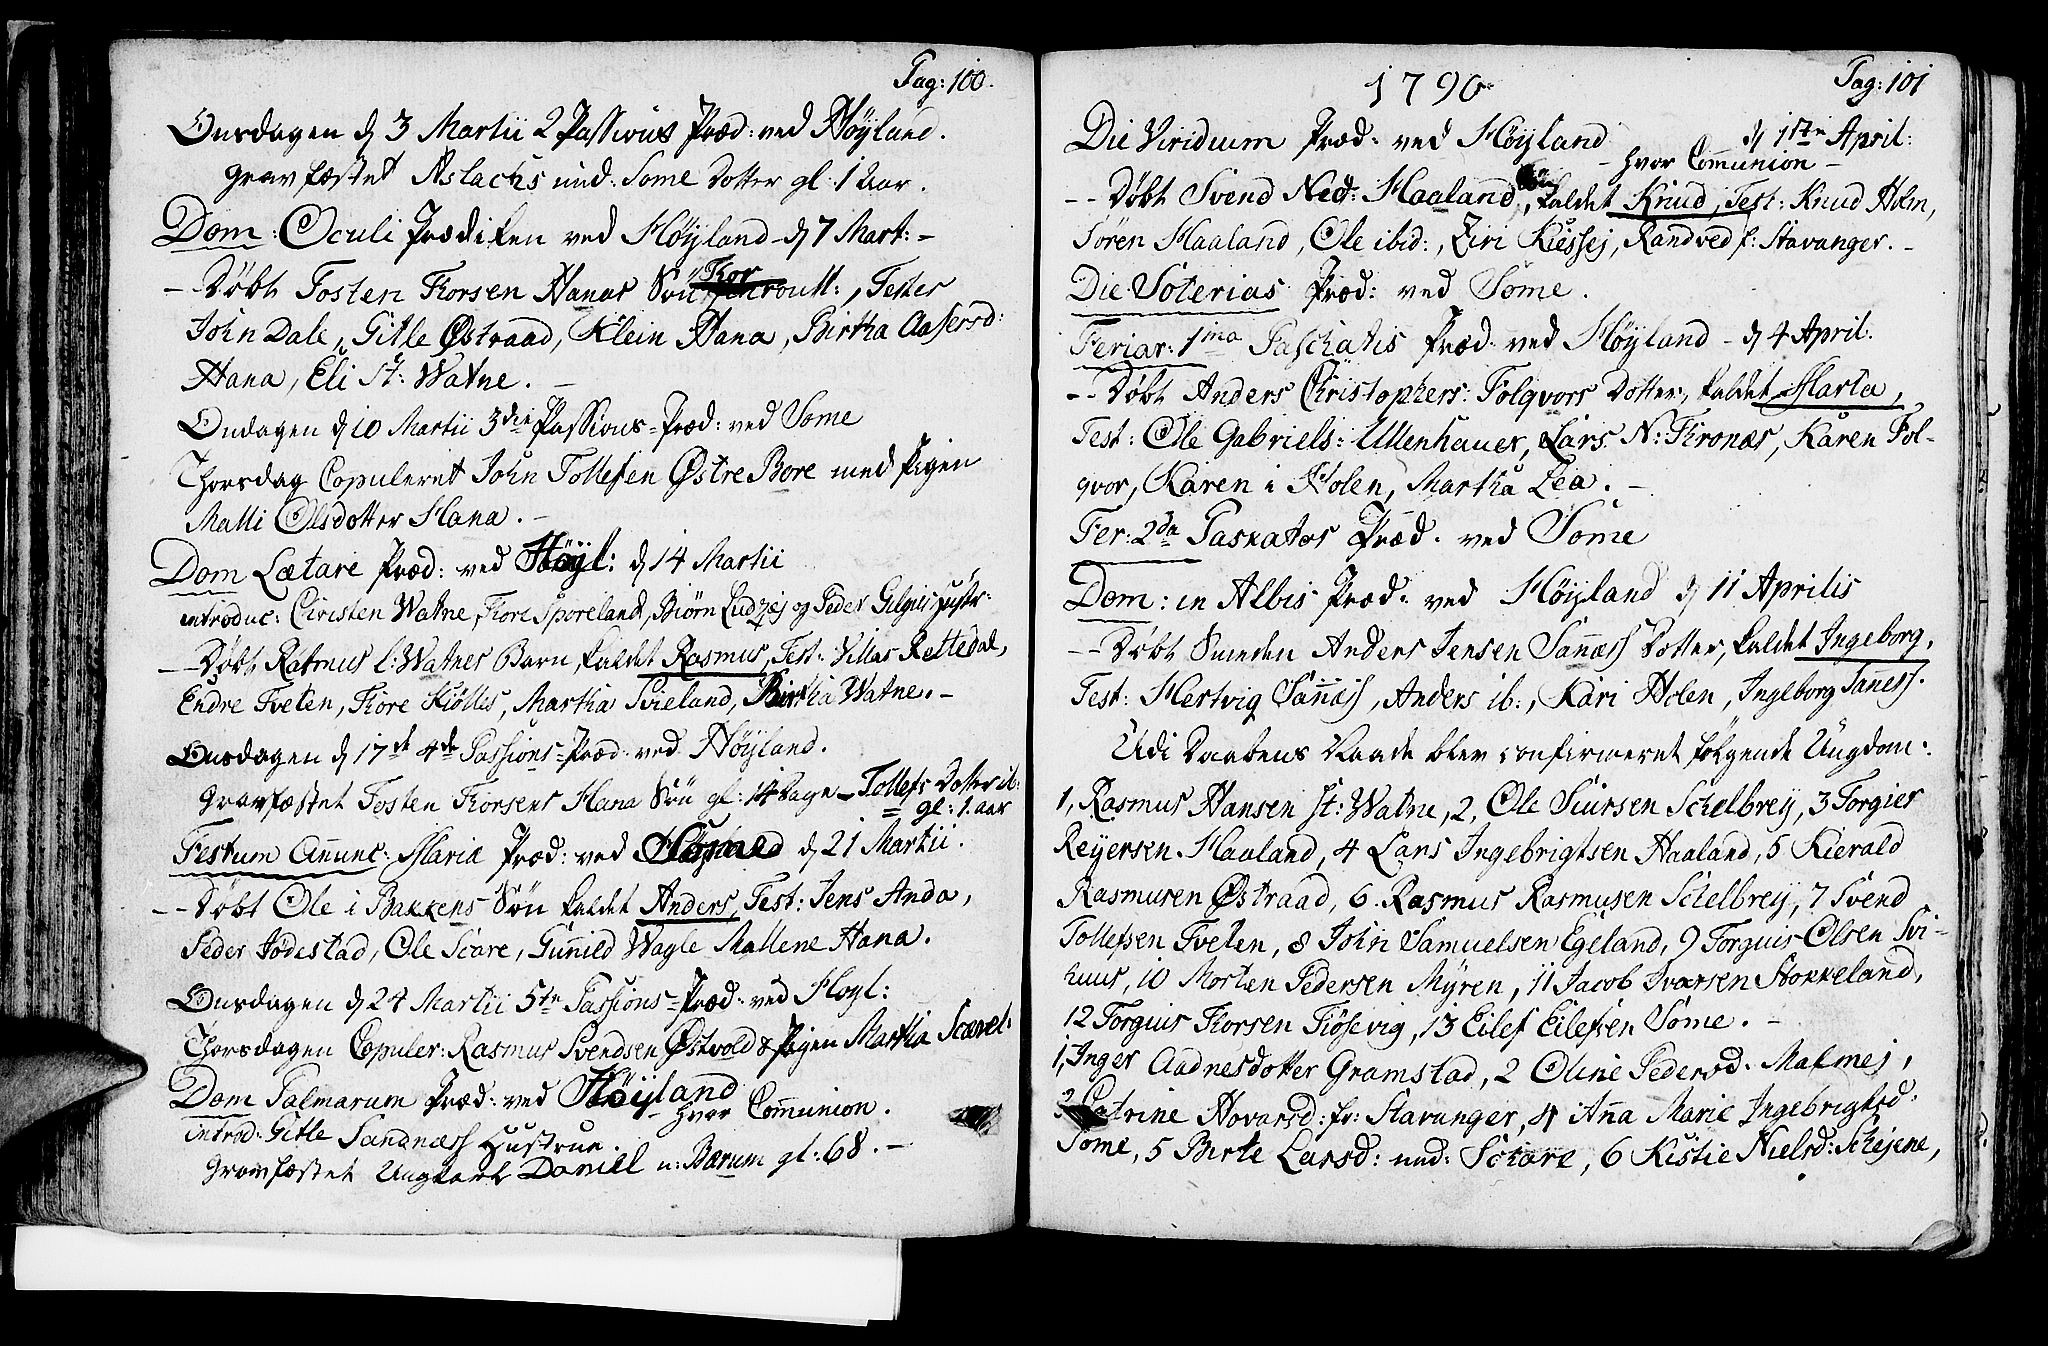 Pag: 100.
Onsdagen d 3 Martii 2 Passions Præd: ved Høyland.
Gravfæstet Aslachs ned: Some Dotter gl: 1 Aar.
Dom: Oculi Prædiken ved Høyland d 7 Mart: -
- Døbt Tosten Torsen Hanas Søn Tor, Testes
John Dale, Gitle Østraad, Klein Hana, Birtha Aasersd:
Hana, Eli St: Watne. -
Ondagen d 10 Martii 3die Passions-Præd: ved Some
Thorsdag Copuleret John Tollefsen Østre Bore med Pigen
Malli Olsdotter Hana. -
Dom Lætare Præd: ved Høyl: d 14 Martii
introduc: Christen Watne, Tore Sporeland, Biørn Ludzej og Peder Hustr:
- Døbt Rasmus l: Watnes Barn kaldet Rasmus, Test: Villas Rettedal,
Endre Tveten, Tore Kiølles, Martha Svieland, Birtha Watne. -
Onsdagen d 17de 4de Passions-Præd: ved Høyland.
Gravfæstet Tosten Torsens Hana Søn gl: 14 Dage - Tollefs Dotter ib:
gl: 1. aar
Festum Anunc: Mariæ Præd: ved Høyland d 21 Martii.
- - Døbt Ole i Bakkens Søn kaldet Anders, Test: Jens Anda,
Peder Jødestad, Ole Scare, Gunild Wagle Mallene Hana.
Onsdagen d 24 Martii 5te Passions-Præd: ved Hoyl:
Thorsdagen Copuler: Rasmus Svendsen Østvold & Pigen Martha Scævel:
Dom Palmarum Præd: ved Høyland
- hvor Communion.
introd: Gitle Sandnæss Hustrue.
Gravfæstet Ungkarl Daniel u: Bærum gl: 68. -
1790.
Pag: 101
Die Viridium Præd: ved Høyland d 1ste April:
- hvor Communion -
- - Døbt Svend Ned: Haaland Søn, kaldet Knud, Test: Knud Holm,
Søren Haaland, Ole ibid:, Ziri Kiessej, Randved f: Stavanger. -
Die Soterias Præd: ved Some.
Feriar: 1ma Paschatis Præd: ved Høyland - d 4 April.
- - Døbt Anders Christophers: Folqvors Dotter, kaldet Marta,
Test: Ole Gabriels: Ullenhauer, Lars N: Kronæs, Karen Fol-
qvor, Karen i Holen, Martha Lea. -
Fer: 2da Paskatos Præd. ved Some
Dom: in Albis Præd: ved Høyland d 11 Aprilis
- - Døbt Smeden Anders Jensen Sannæss Dotter, kaldet Ingeborg.
Test: Hertvig Sannæss, Anders ib:, Kari Holen, Ingeborg Saness.
Udi Daabens Naade blev confirmeret følgende Ungdom:
1, Rasmus Hansen St: Watne, 2, Ole Siursen Schelbrey, 3 Torgier
Reyersen Haaland, 4 Lars Ingebrigtsen Haaland, 5 Kierald
Rasmusen Østraad, 6. Rasmus Rasmusen Schelbrey, 7 Svend
Tollefsen Tveten, 8 John Samuelsen Egeland, 9 Torguis Olsen Svi-
huus, 10 Morten Pedersen Myren, 11 Jacob Ivarsen Stokkeland,
12 Torguis Torsen Tiøsevig, 13 Eilef Eilefsen Some. -
1, Inger Aadnesdotter Gramstad, 2 Oline Pedersd. Malmej,
3 Catrine Hovarsd: fr: Stavanger, 4 Anna Marie Ingebrigtsd:
Some, 5 Birte Larsd: ned: Schare, 6 Kistie Nielsd: Schejene,